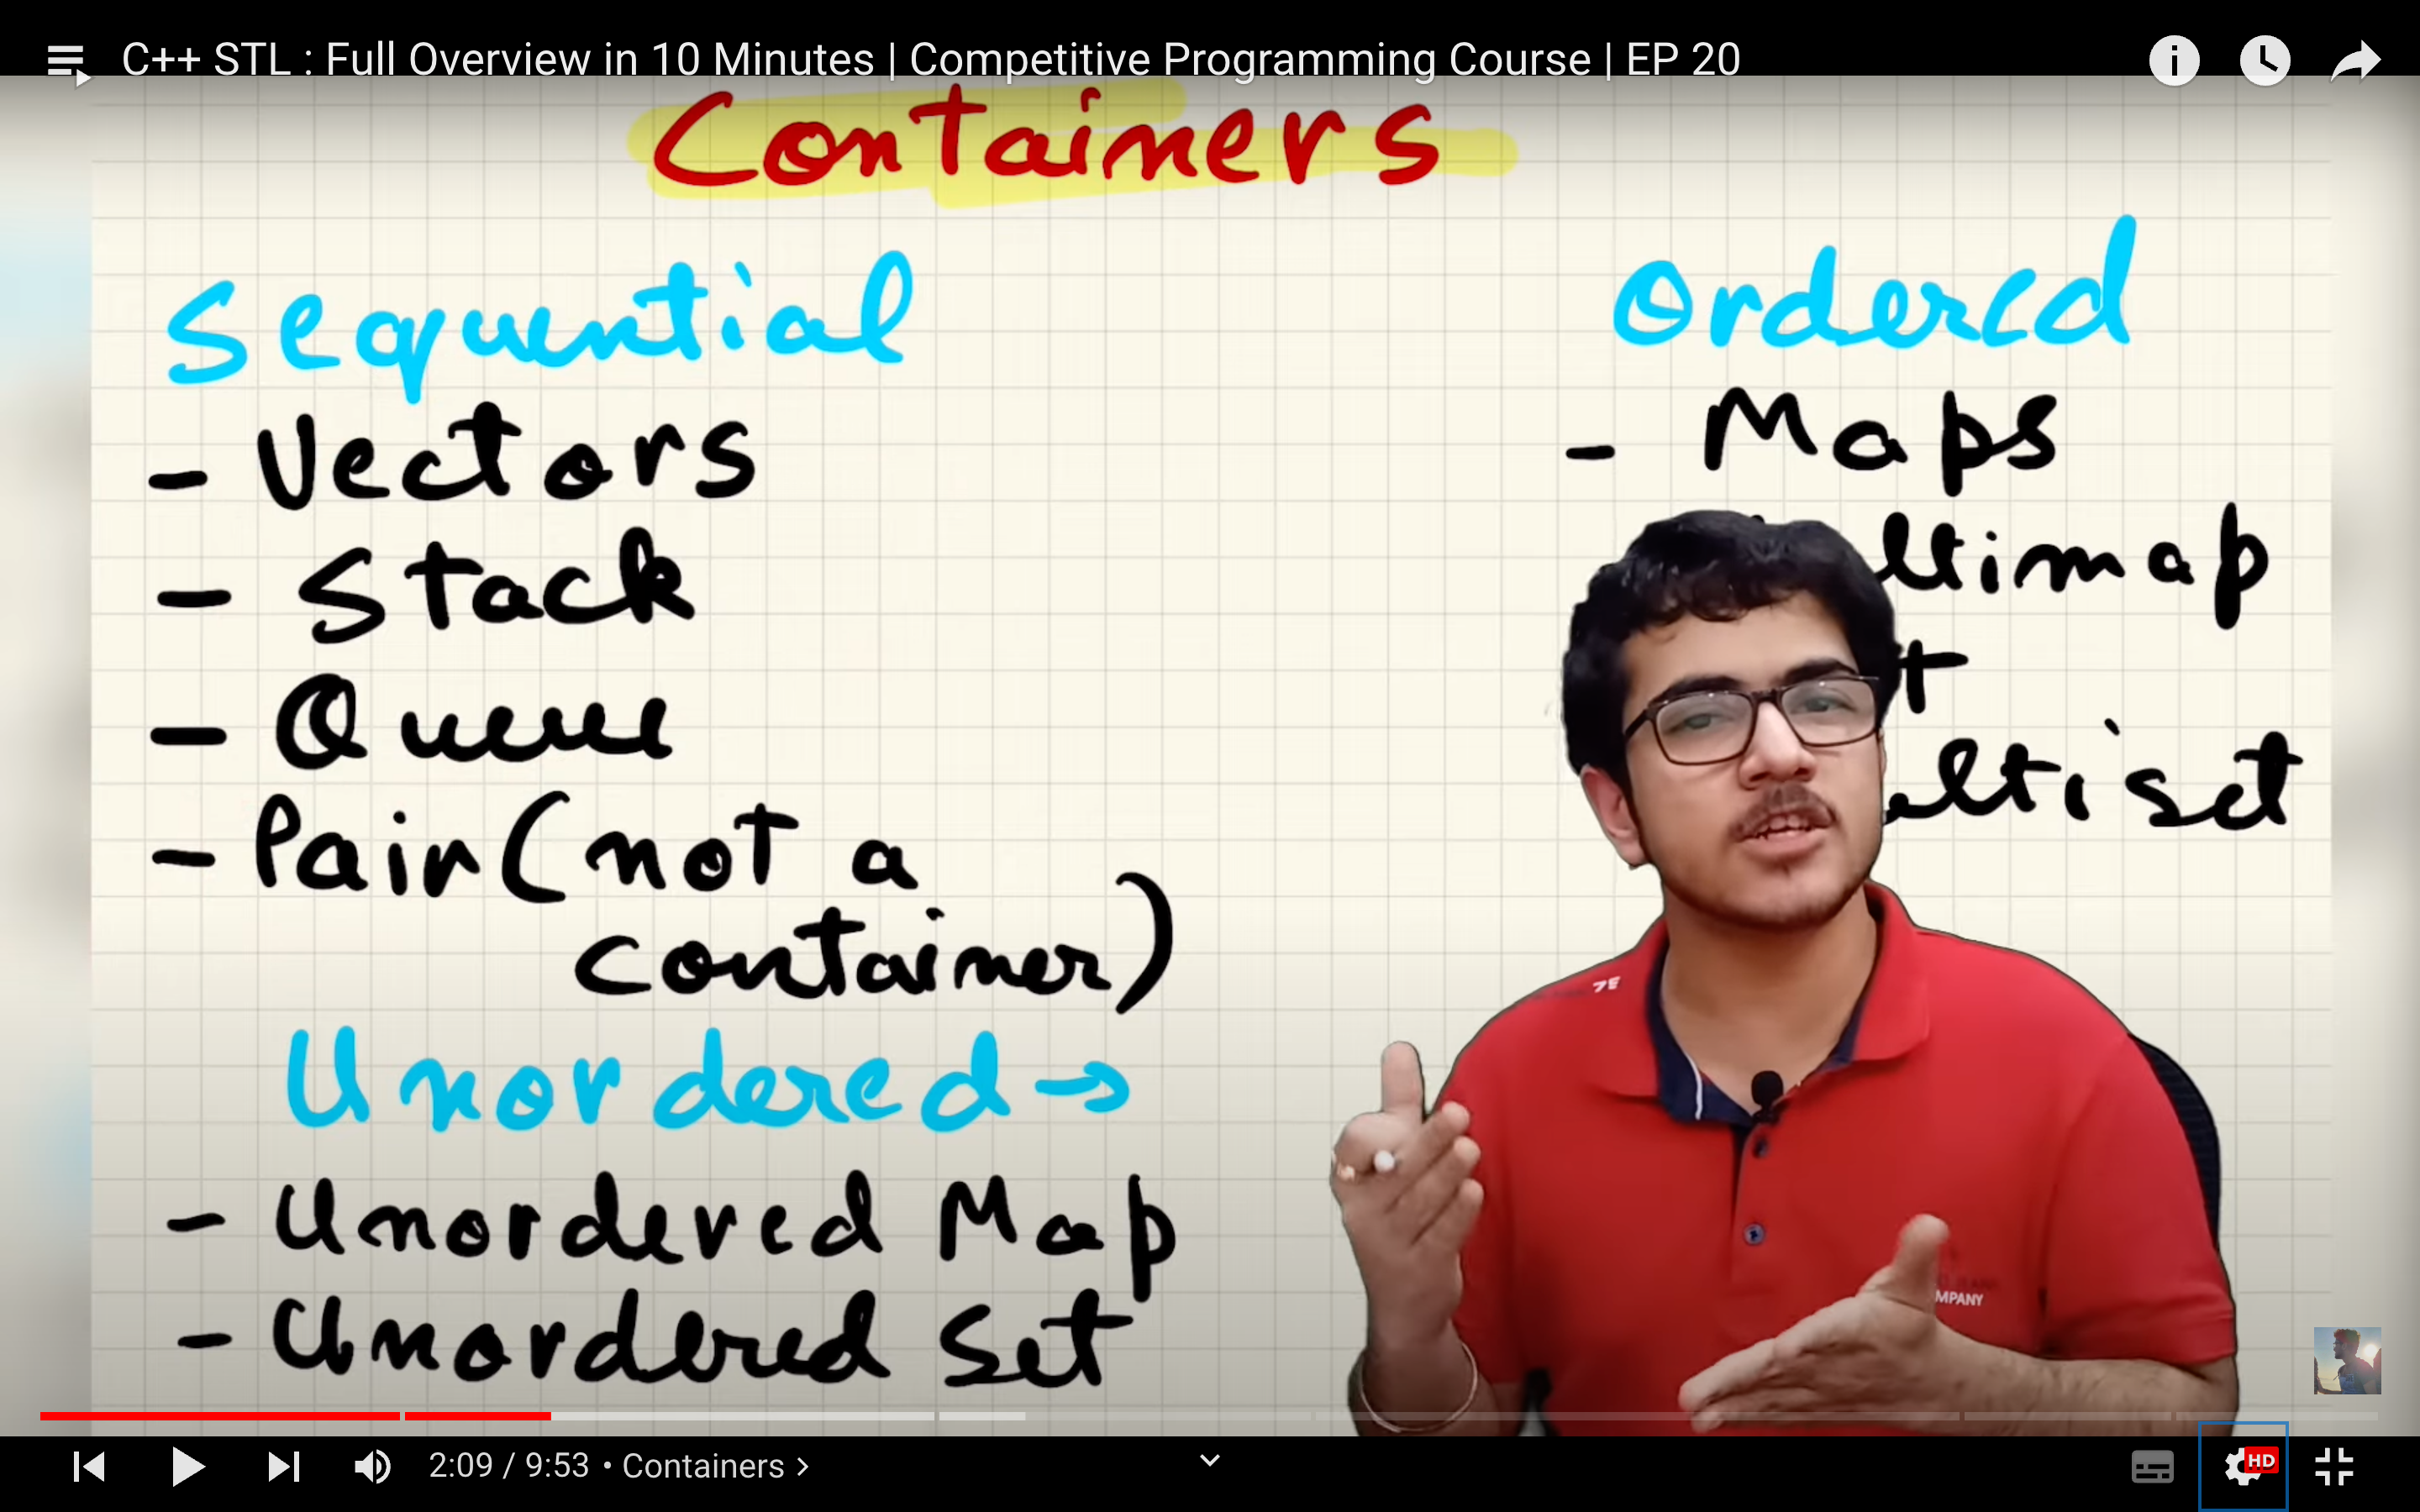 C++ STL : Full Overview in 10 Minutes | Competitive Programming Course | EP 20
Containers
Sequential
- Vectors
- Stack
- Queue
- Pair (not a
container)
Unordered →
- Unordered Map
- Unordered Set
Ordered
- Maps
ltimap
t
ltiset
MPANY
2:09 / 9:53 • Containers >
HD